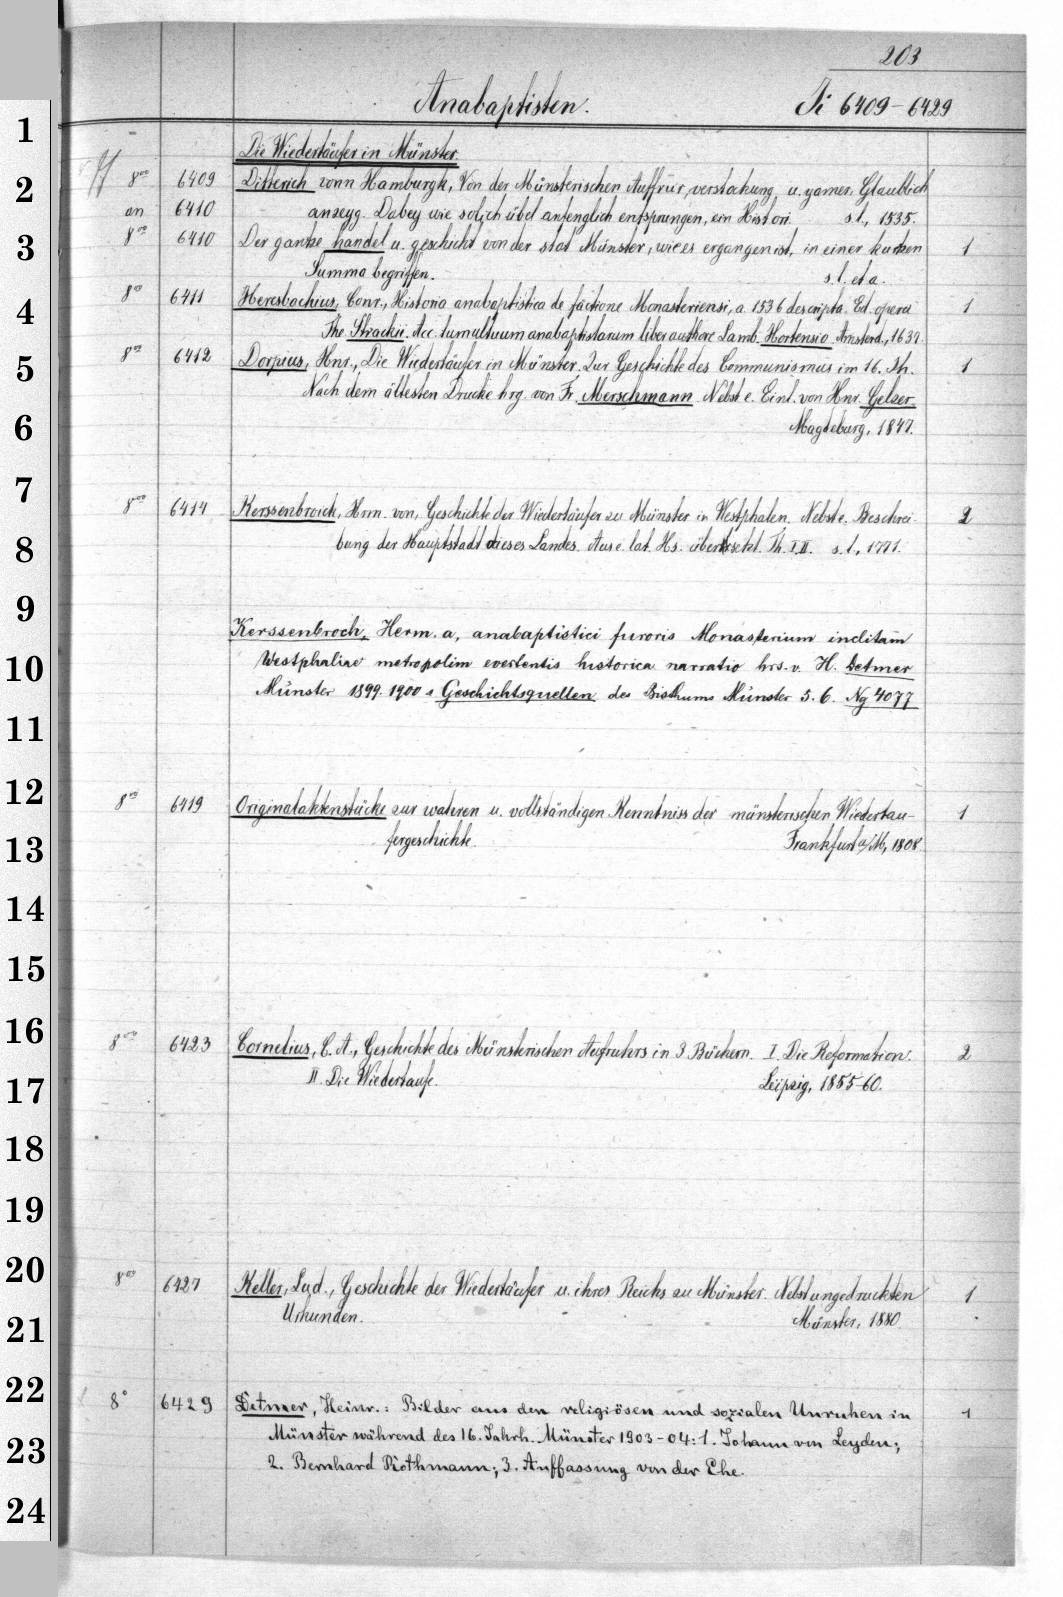 203
Anabaptisten. Ji 6409-6429
Die Wiedertäufer in Münster.
8vo 6409 Ditterich vonn Hamburgk, Von der Münsterischen Auffrür, verstockung u. yamer. Glaublich
an 6410 anzeyg. Dabey wie solich übel anfenglich entsprungen, ein Histori. s. l., 1535.
8vo 6410 Der gantze handel u. geschicht von der stat Münster, wie es ergangen ist, in einer kurtzen 1
Summa begriffen. s. l. et a.
8vo 6411 Heresbachius, Conr., Historia anabaptistica de factione Monasteriensi, a. 1536 descripta. Ed. opera 1
The. Strackii. Acc. tumultuum anabaptistarum liber authore Lamb. Hortensio. Amsterd., 1637.
8vo 6412 Dorpius, Hnr., Die Wiedertäufer in Münster. Zur Geschichte des Communismus im 16. Jh. 1
Nach dem ältesten Drucke hrg. von Fr. Merschmann. Nebst e. Einl. von Hnr. Gelzer.
Magdeburg, 1847.
8vo 6414 Kerssenbroick, Hrm. von, Geschichte der Wiedertäufer zu Münster in Westphalen. Nebst e. Beschrei- 2
bung der Hauptstadt dieses Landes. Aus e. lat. Hs. übersetzt. Th. I. II. s. l., 1771.
Kerssenbroch, Herm. a, anabaptistici furoris Monasterium inclitam
Westphaliae metropolim evertentis historica narratio hrs. v. H. Detmer
Münster 1899. 1900 s Geschichtsquellen des Bisthums Münster 5. 6. Ng 4077
8vo 6419 Originalaktenstücke zur wahren u. vollständigen Kenntniss der münsterischen Wiedertäu- 1
fergeschichte. Frankfurt a/M, 1808
8vo 6423 Cornelius, C. A., Geschichte des Münsterischen Aufruhrs in 3 Büchern. I. Die Reformation. 2
II. Die Wiedertaufe. Leipzig, 1855-60.
8vo 6427 Keller, Lud., Geschichte der Wiedertäufer u. ihres Reichs zu Münster. Nebst ungedruckten 1
Urkunden. Münster, 1880.
8° 6429 Detmer, Heinr.: Bilder aus den religiösen und sozialen Unruhen in 1
Münster während des 16. Jahrh. Münster 1903-04: 1. Johann von Leyden;
2. Bernhard Rothmann; 3. Auffassung von der Ehe.
1
2
3
4
5
6
7
8
9
10
11
12
13
14
15
16
17
18
19
20
21
22
23
24